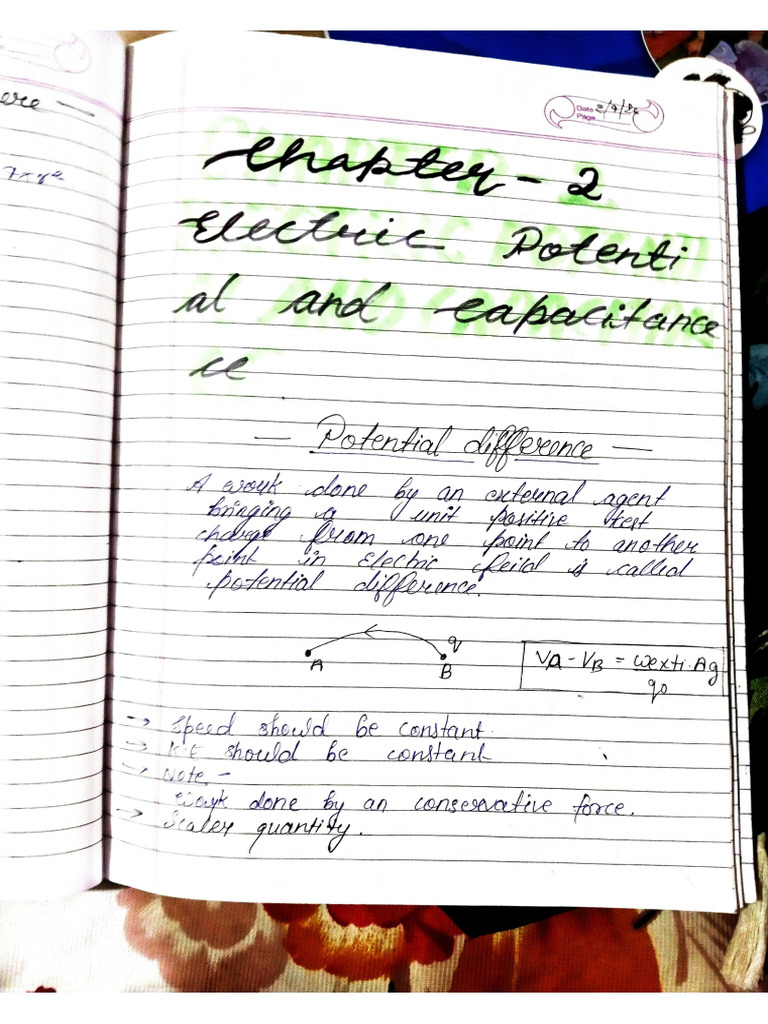 ere —
Date 2/9/
Page
Chapter - 2
Electric Potenti
al and Capacitance
ce
— Potential difference —
A work done by an external agent
bringing a unit positive test
charge from one point to another
point in Electric feild is called
potential difference.
q
A B
VA - VB = Wexti. Ag
q0
→ Speed should be constant.
→ K.E should be constant
→ Note:-
Work done by an conservative force.
→ Scaler quantity.